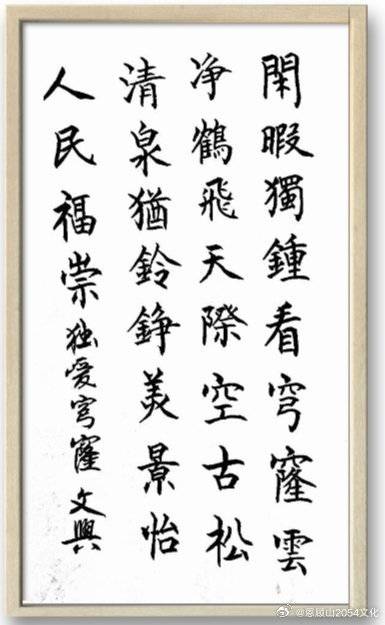 閑暇獨鍾看穹窿雲
净鶴飛天際空古松
清泉猶鈴錚美景怡
人民福崇 独愛穹窿 文興
山2054文化